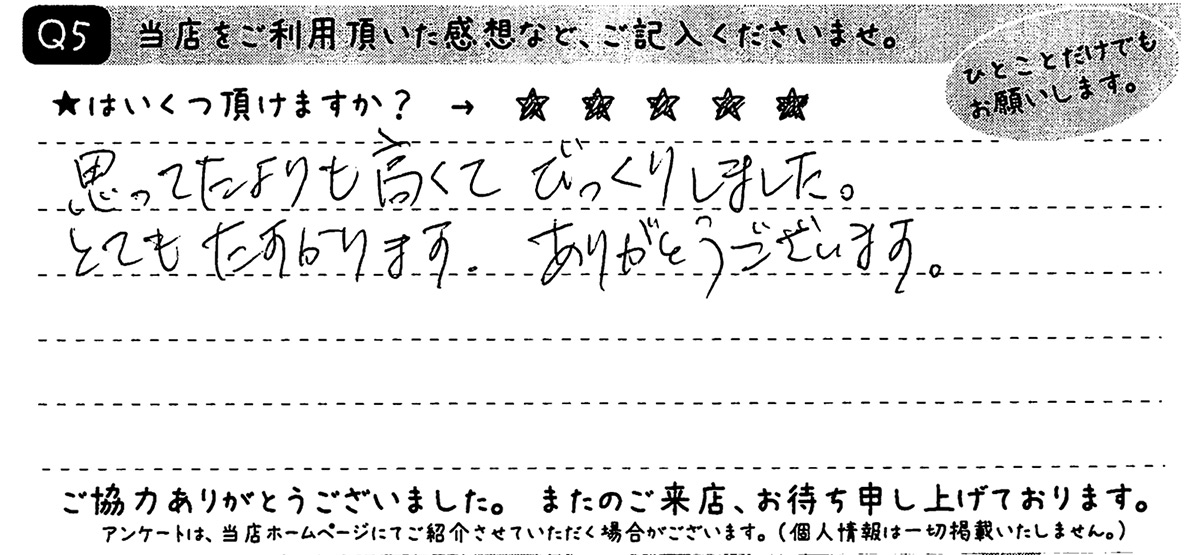 Q5 当店をご利用頂いた感想など、ご記入くださいませ。
ひとことだけでも
お願いします。
★はいくつ頂けますか? → ☆ ☆ ☆ ☆ ☆
思ってたよりも高くて びっくりしました。
とてもたすかります. ありがとうございます。
ご協力ありがとうございました。 またのご来店、お待ち申し上げております。
アンケートは、当店ホームページにてご紹介させていただく場合がございます。(個人情報は一切掲載いたしません。)